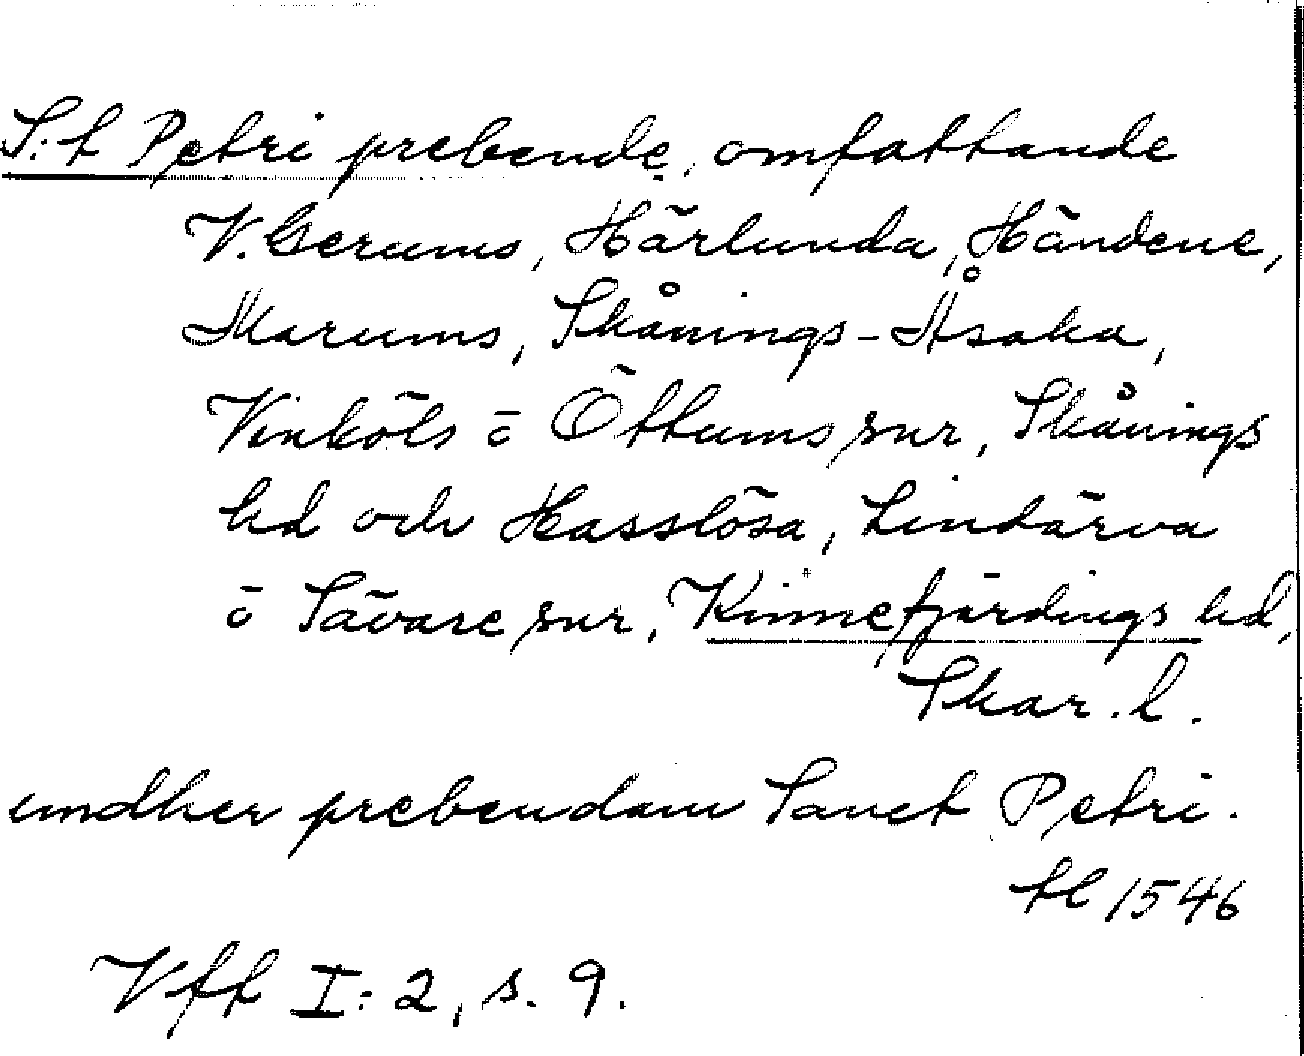 S:t Petri prebende, omfattande
V. Gerums, Härlunda, Händene,
Marums, Skånings-Åsaka,
Vinköls o Öttums snr, Skånings
hd och Hasslösa, Lindärva
o Sävare snr, Kinnefjärdings hd,
Skar. l.
undher prebendam Sanct Petri.
tl 1546
Vff I:2, s. 9.